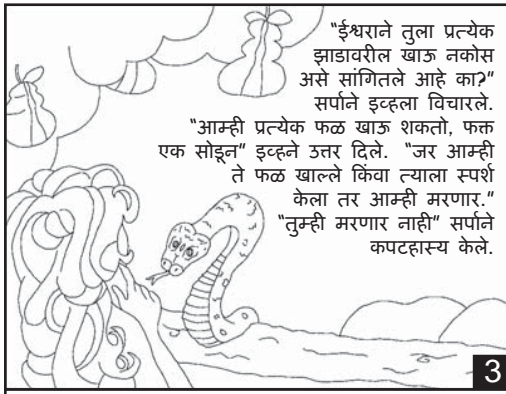 "ईश्वराने तुला प्रत्येक
झाडावरील खाऊ नकोस
असे सांगितले आहे का?"
सर्पाने इव्हला विचारले.
"आम्ही प्रत्येक फळ खाऊ शकतो, फक्त
एक सोडून" इव्हने उत्तर दिले. "जर आम्ही
ते फळ खाल्ले किंवा त्याला स्पर्श
केला तर आम्ही मरणार."
"तुम्ही मरणार नाही" सर्पाने
कपटहास्य केले.
3